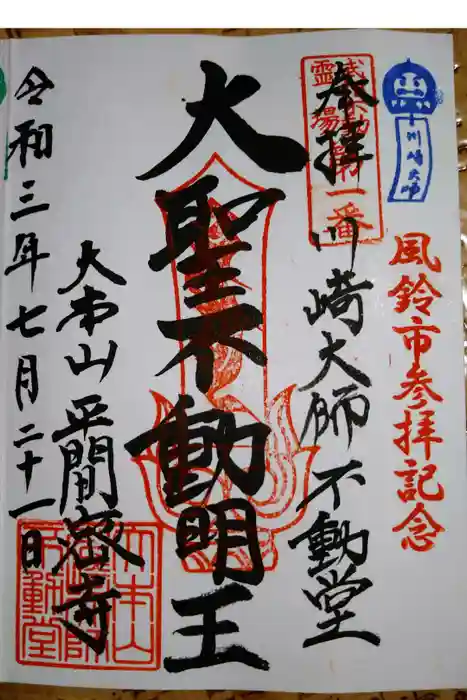 川崎大師
風鈴市参拝記念
武蔵不動第一番
霊場
奉拝
川崎大師不動堂
大聖不動明王
大本山平間寺
令和三年七月二十一日
大本山
不動堂